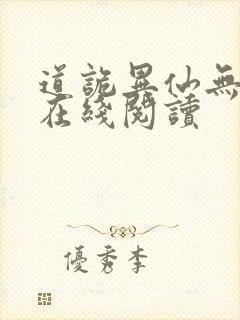 道詭異仙無
在綫閱讀
優秀李